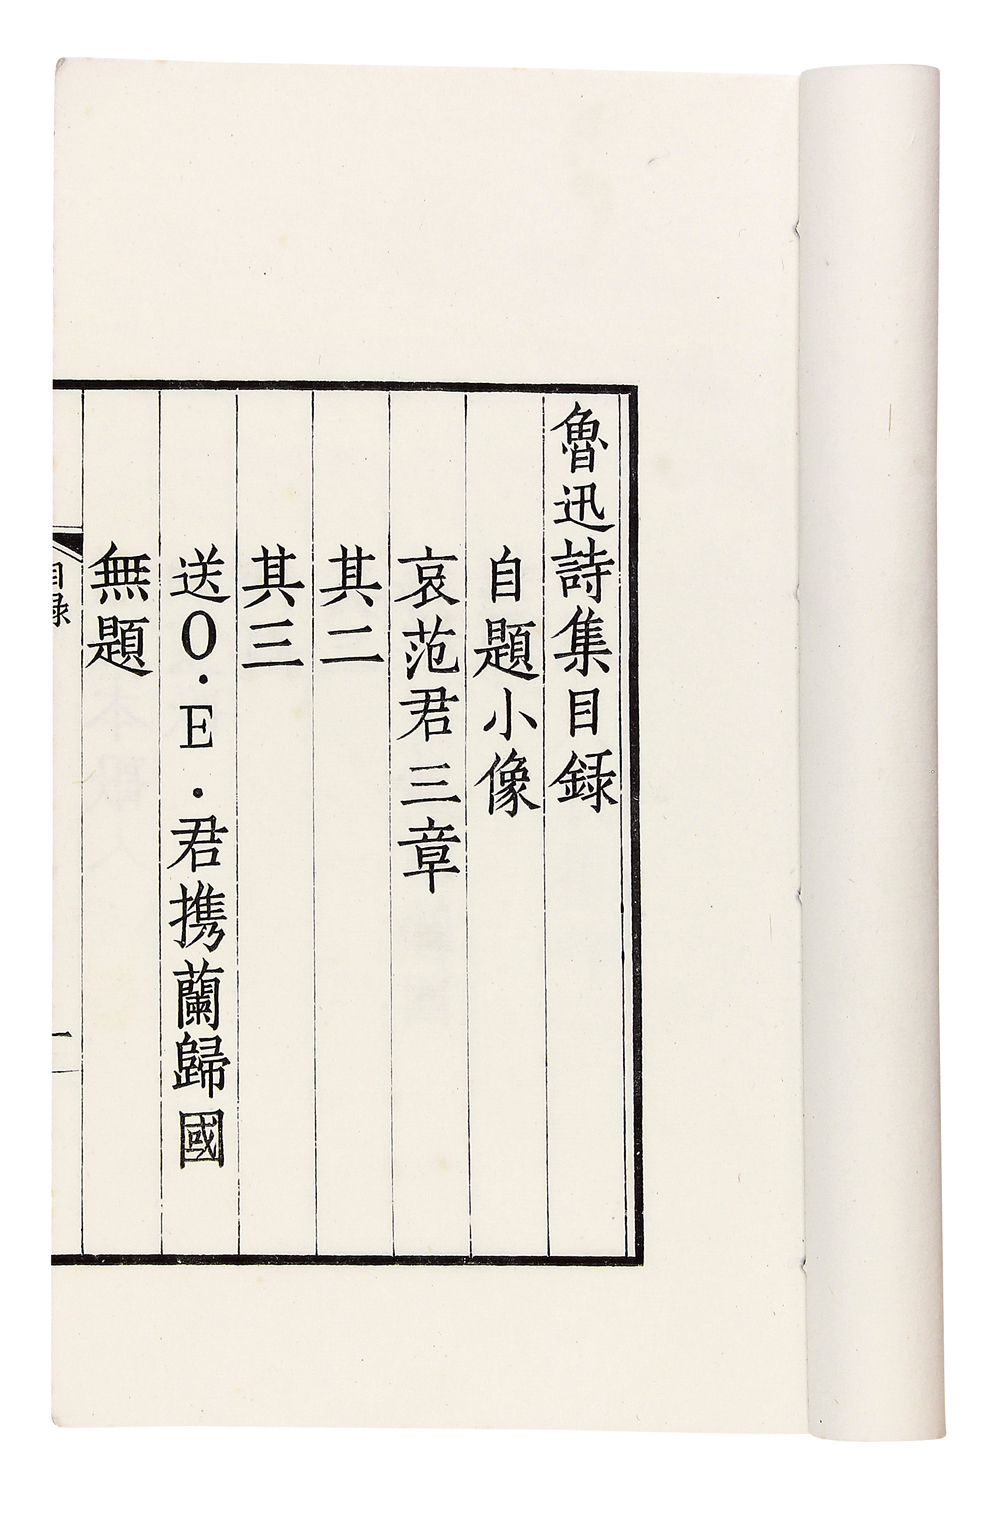 魯迅詩集目録
自題小像
哀范君三章
其二
其三
送O·E·君携蘭歸國
無題
目録
一